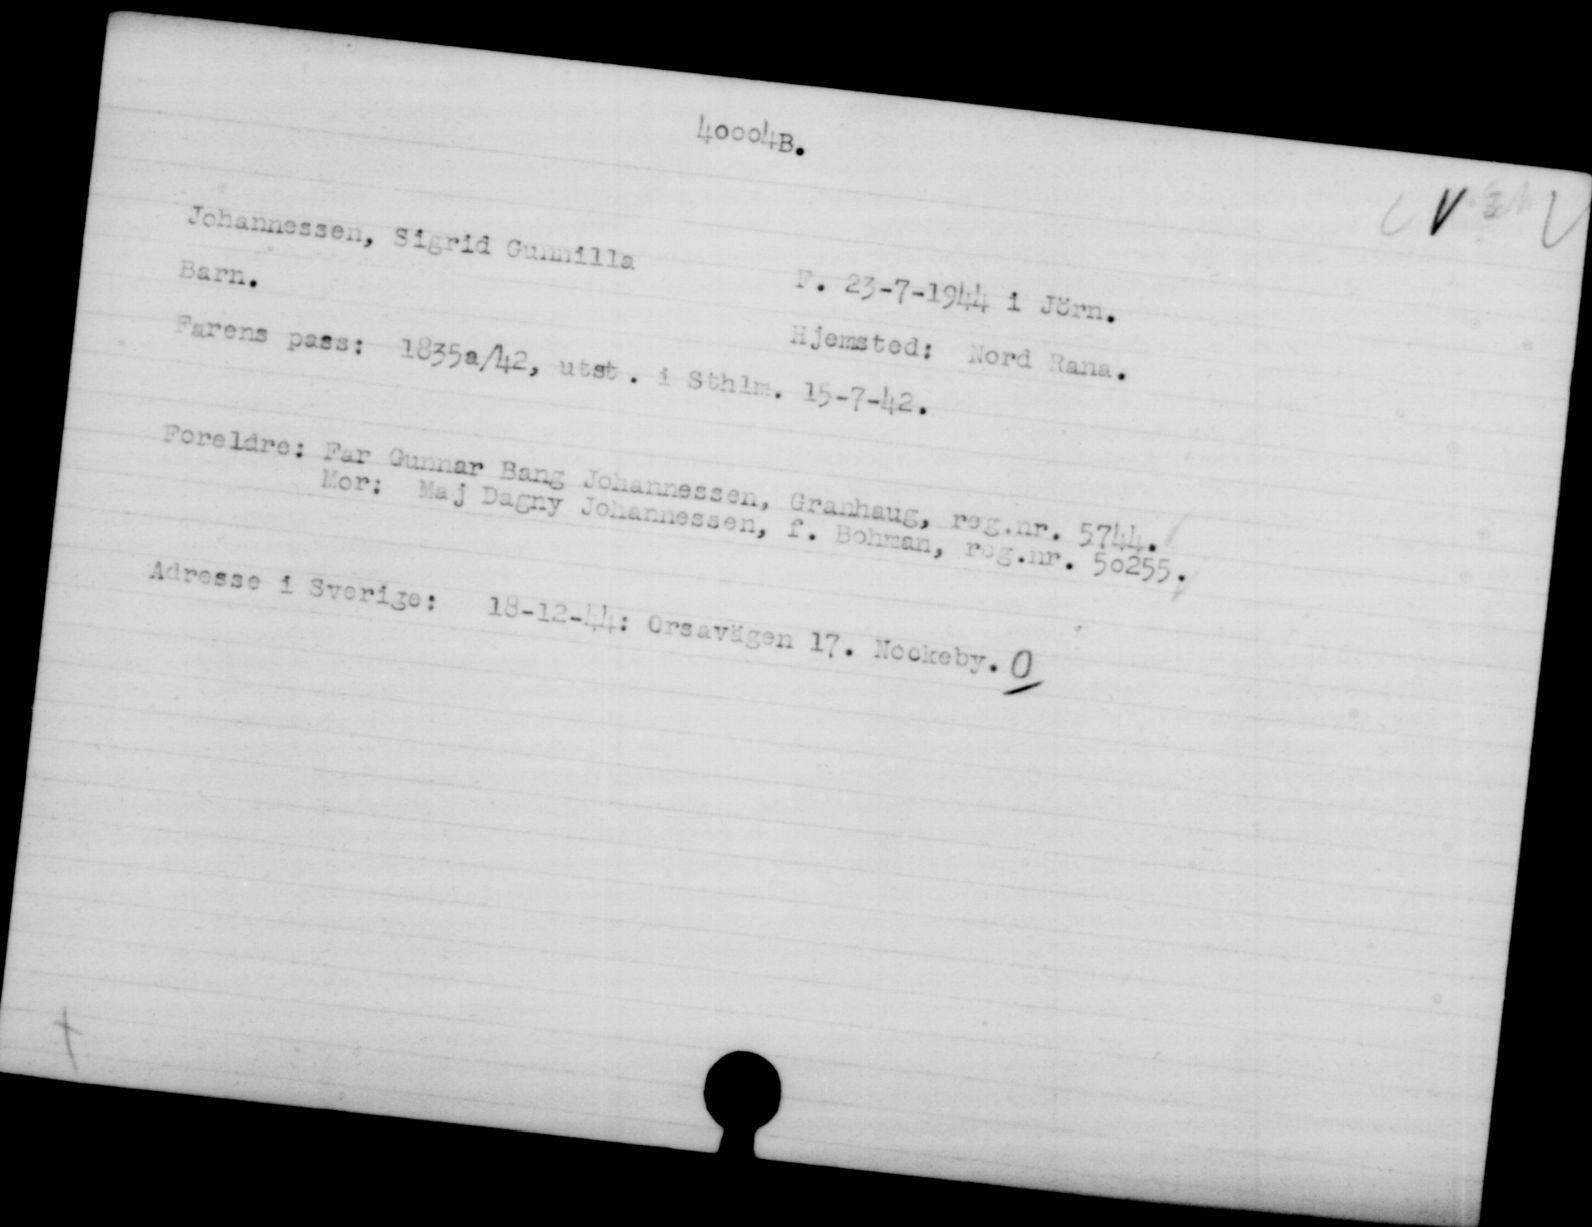 40004B.
Johannessen, Sigrid Gunnilla
F. 23-7-1944 i Jörn.
Barn.
Hjemsted: Nord Rana.
Farens pass: 1835a/42, utst. i Sthlm. 15-7-42.
Foreldre: Far Gunnar Bang Johannessen, Granhaug, reg.nr. 5744.
Mor: Maj Dagny Johannessen, f. Bohman, reg.nr. 50255.
Adresse i Sverige: 18-12-44: Orsavägen 17. Nockeby. O